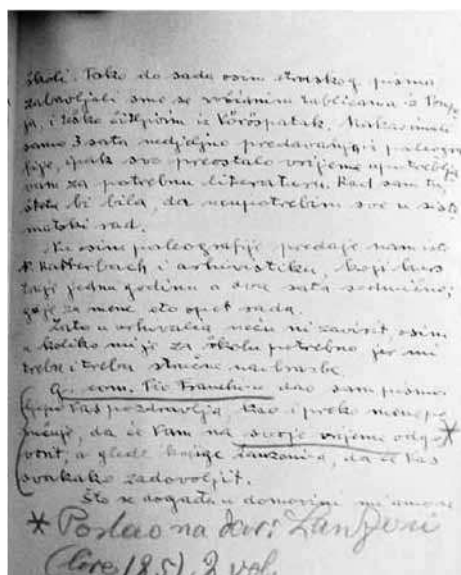 školi. Tako do sada osim uzuskog pisma
zabavljali smo se voštanim tablicama iz Pompe
ja, i teško čitljivim iz Vöröspatak. Makar imali
samo 3 sata nedjeljno predavanja i paleogra
fije, ipak sve preostalo vrijeme upotreblja
vam za potrebnu literaturu. Kad sam tu,
šteta bi bila, da neupotrebim sve u siste
matski rad.
Ku osim paleografije predaje nam isti
P. Katterbach i arhivistiku, koji kurs
traje jednu godinu a dva sata sedmično;
gdje za mene eto opet rada.
Zato u arhivalia neću ni zavirit, osim
u koliko mi je za školu potrebno jer mi
treba i treba stručne naobrazbe.
G. com. Pio Franchiu dao sam pismo
lijepo Vas pozdravlja, kao i preko mene po
ručuje, da će Vam na svoje vrijeme odgo *
vorit, a glede knjige Zanzonia, da će Vas
svakako zadovoljit.
Što se događa u domovini mi amo ne
* Poslao na dar: Zanzoni
(lire 125). 2 vol.